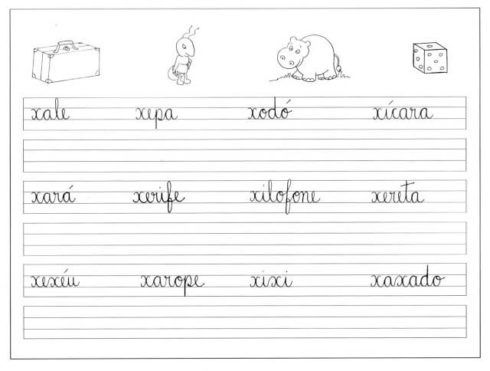 xale xepa xodó xícara
xará xerife xilofone xereta
xexéu xarope xixi xaxado